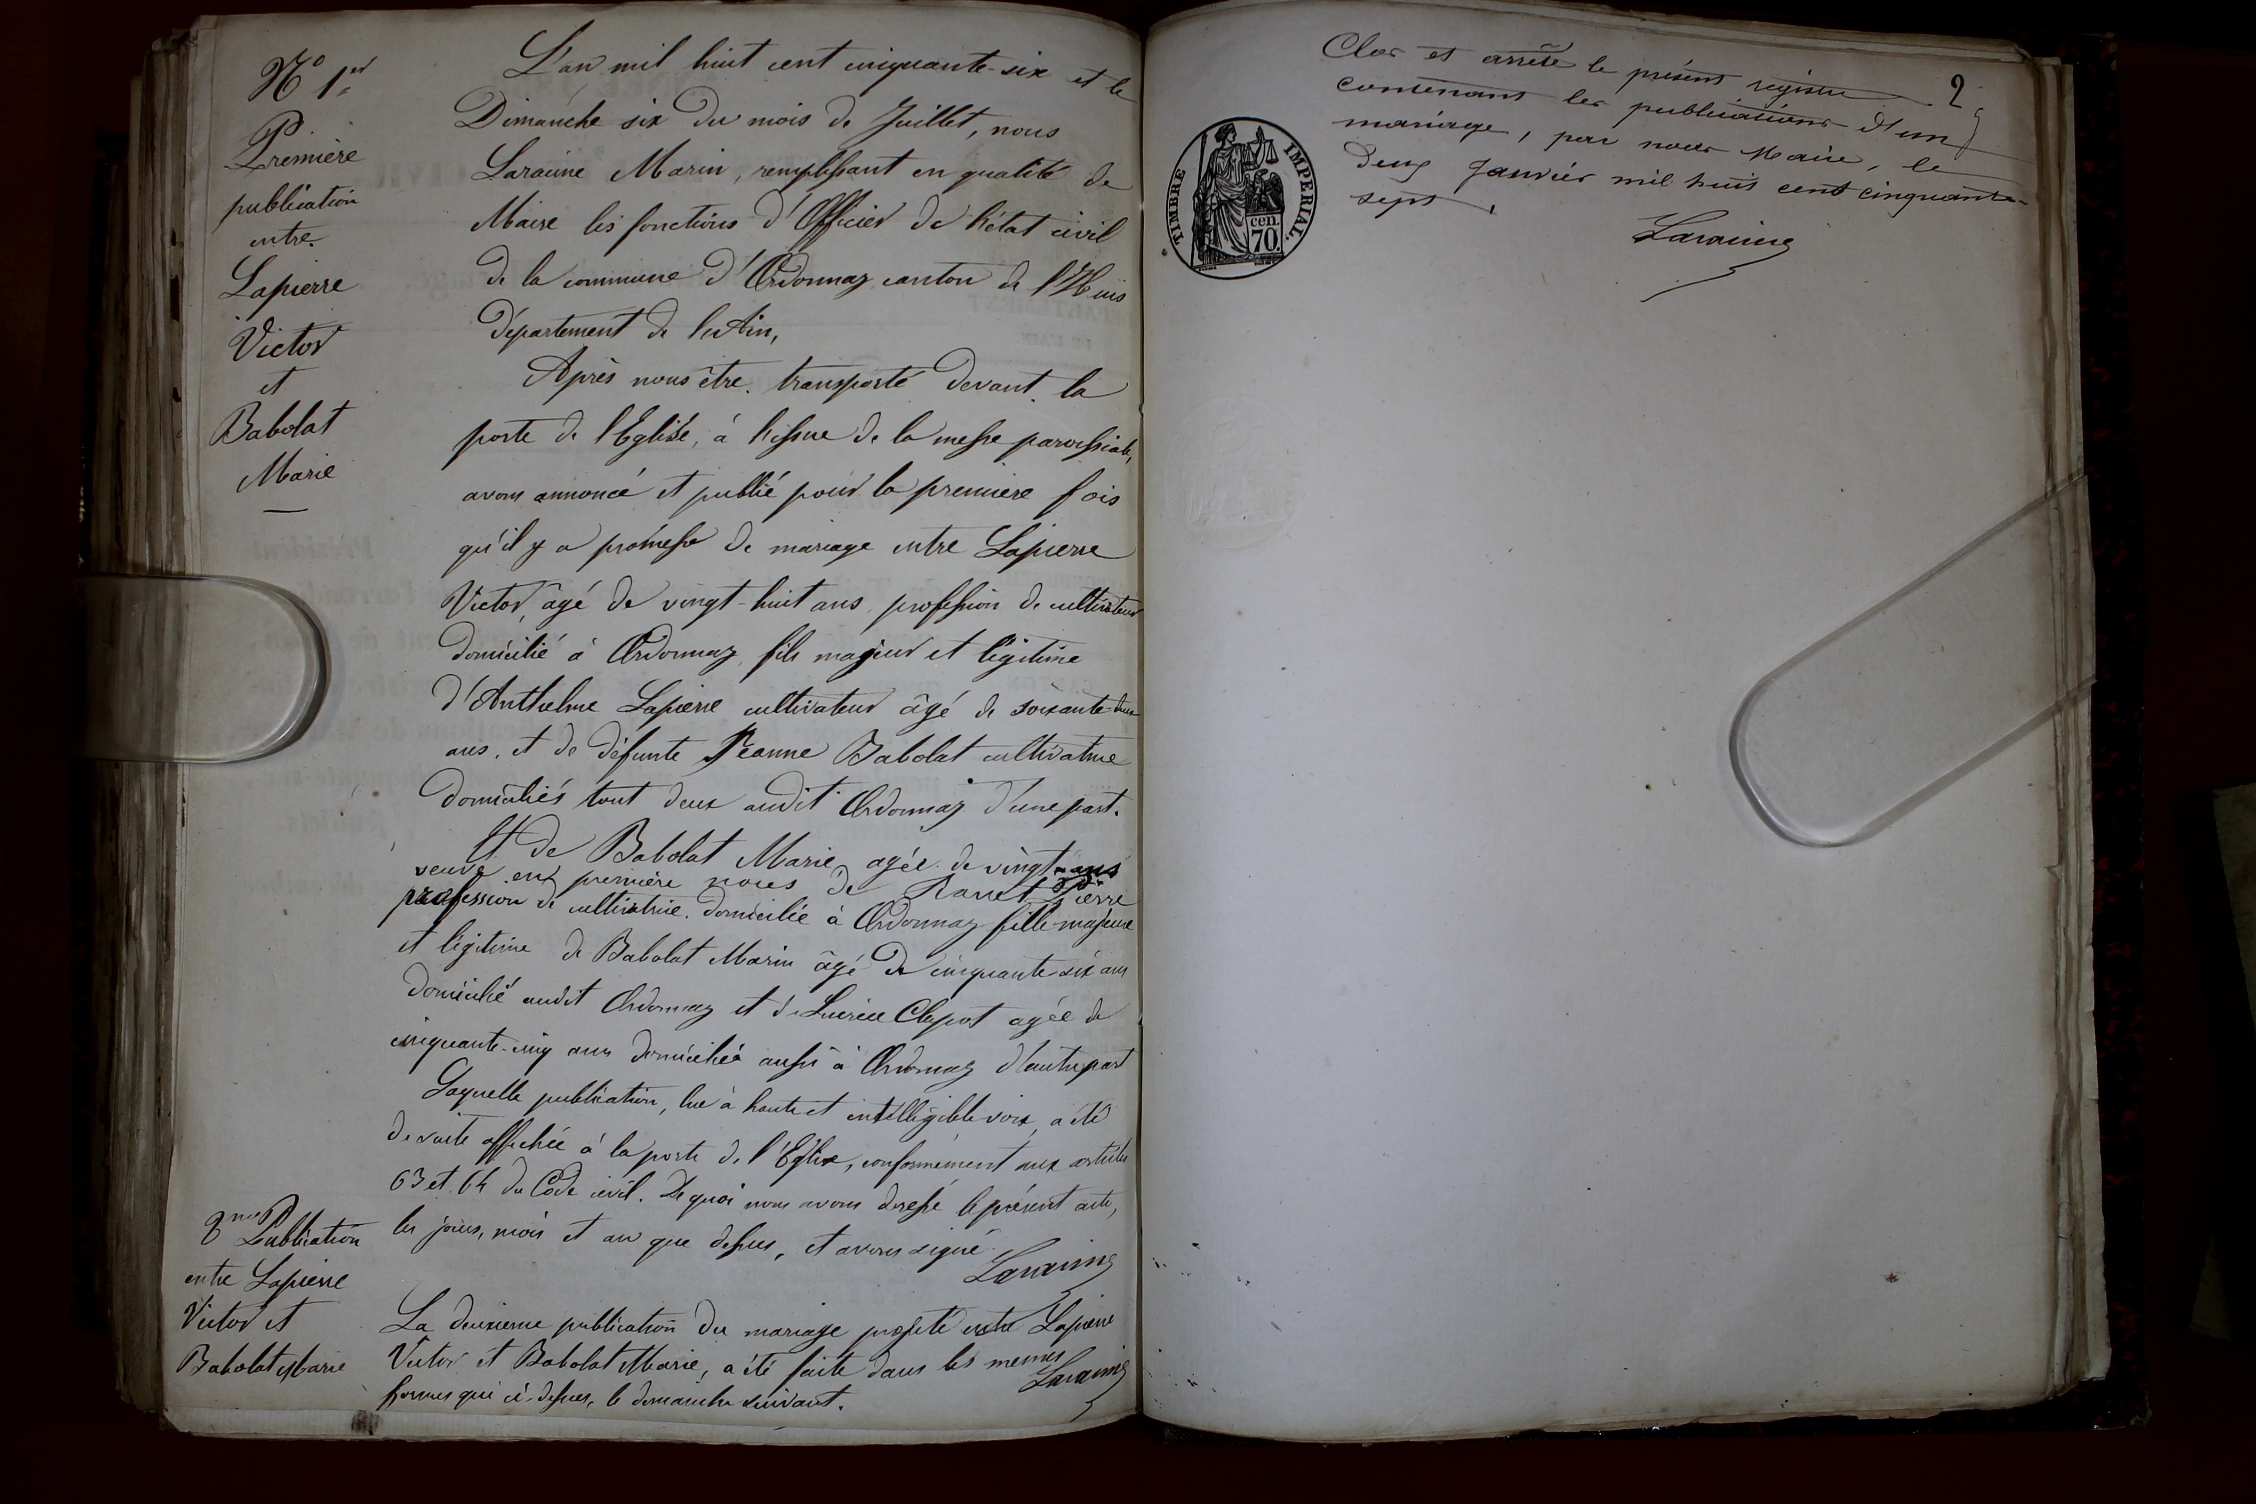 N° 1er
Première
publication
entre
Lapierre
Victor
et
Babolat
Marie
L'an mil huit cent cinquante-six et le
Dimanche six du mois de Juillet, nous
Laraime Marin, remplissant en qualité de
Maire les fonctions d'Officier de l'état civil
de la commune d'Ordonnaz canton de l'Huis
Département de l'Ain,
Après nous être transporté devant la
porte de l'Eglise, à l'issue de la messe paroissiale,
avons annoncé et publié pour la première fois
qu'il y a promesse de mariage entre Lapierre
Victor, âgé de vingt-huit ans, profession de cultivateur
domicilié à Ordonnaz, fils majeur et légitime
d'Anthelme Lapierre cultivateur âgé de soixante-deux
ans, et de défunte Jeanne Babolat cultivatrice
domiciliés tout deux audit Ordonnaz d'une part.
Et de Babolat Marie agée de vingt ans
veuve en première noces de Pierre
profession de cultivatrice, domiciliée à Ordonnaz fille majeure
et légitime de Babolat Marin âgé de cinquante six ans
domicilié audit Ordonnaz et de Lucrèce Clapot agée de
cinquante-cinq ans domiciliés aussi à Ordonnaz d'autre part
Laquelle publication, lue à haute et intelligible voix, a été
de suite affichée à la porte de l'Eglise, conformément aux articles
63 et 64 du Code civil. De quoi nous avons dressé le présent acte,
les jours, mois et an que dessus, et avons signé.
Laraime
2me Publication
entre Lapierre
Victor et
Babolat Marie
La deuxieme publication du mariage projeté entre Lapierre
Victor et Babolat Marie, a été faite dans les memes
formes que ci-dessus, le dimanche suivant.
Laraime
2
Clos et arrêté le présent registre
contenant les publications d'un
mariage, par nous Maire, le
deux Janvier mil huit cent cinquante-
sept.
Laraime
TIMBRE IMPERIAL
cen.
70.